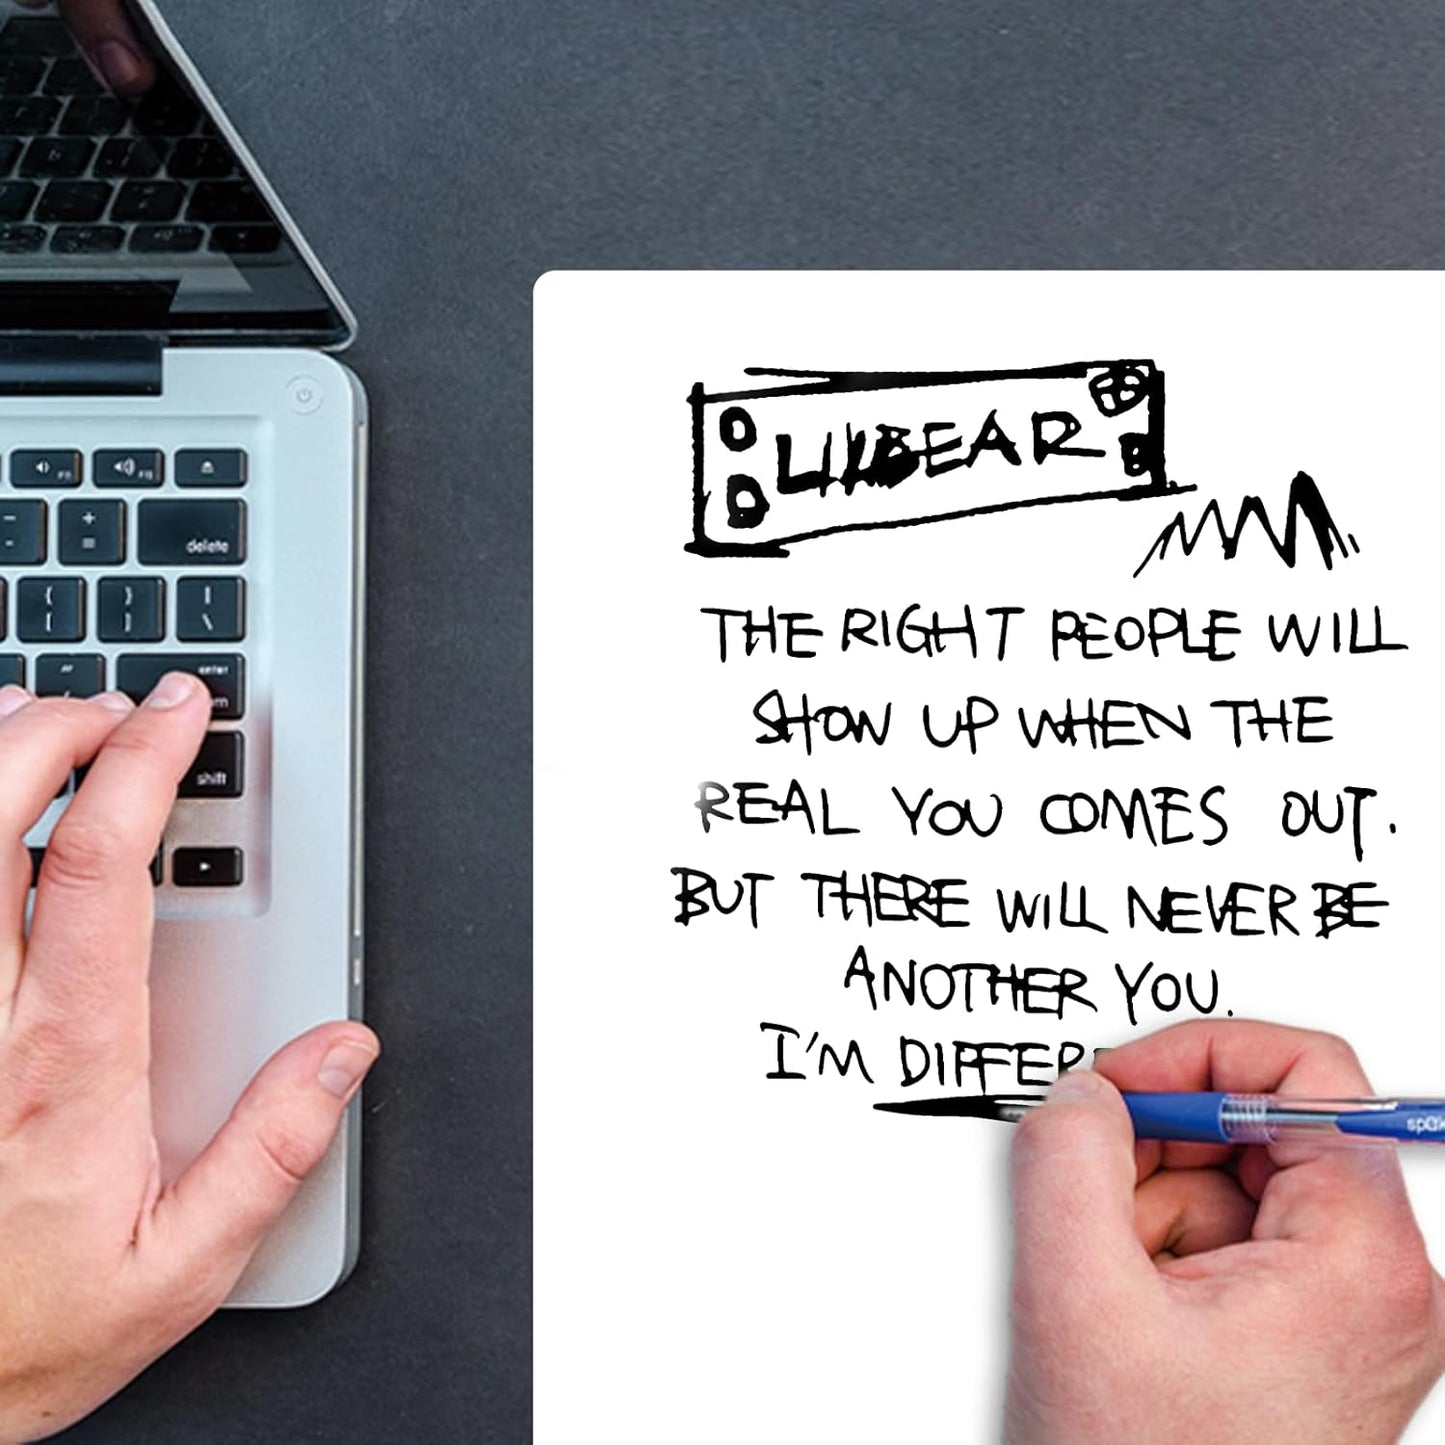 LILBEAR
THE RIGHT PEOPLE WILL
SHOW UP WHEN THE
REAL YOU COMES OUT.
BUT THERE WILL NEVER BE
ANOTHER YOU.
I'M DIFFER
delete
enter
shift